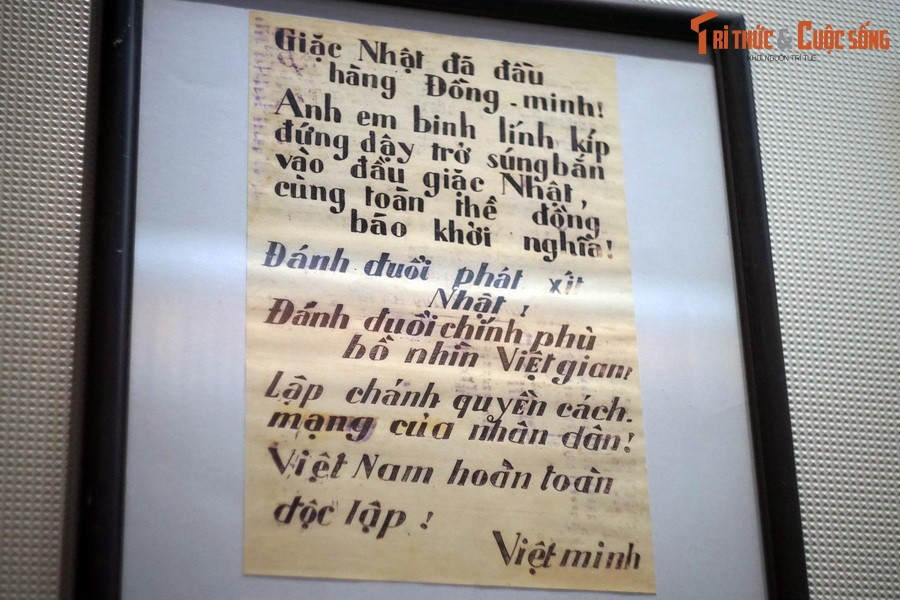 TRI THỨC & CUỘC SỐNG
KHƠI NGUỒN TRI TUỆ
Giặc Nhật đã đầu
hàng Đồng-minh!
Anh em binh lính kíp
đứng dậy trở súng bắn
vào đầu giặc Nhật,
cùng toàn thể đồng
bào khởi nghĩa!
Đánh đuổi phát xít
Nhật!
Đánh đuổi chính phủ
bồ nhìn Việt gian!
Lập chánh quyền cách
mạng của nhân dân!
Việt Nam hoàn toàn
độc lập!
Việt minh